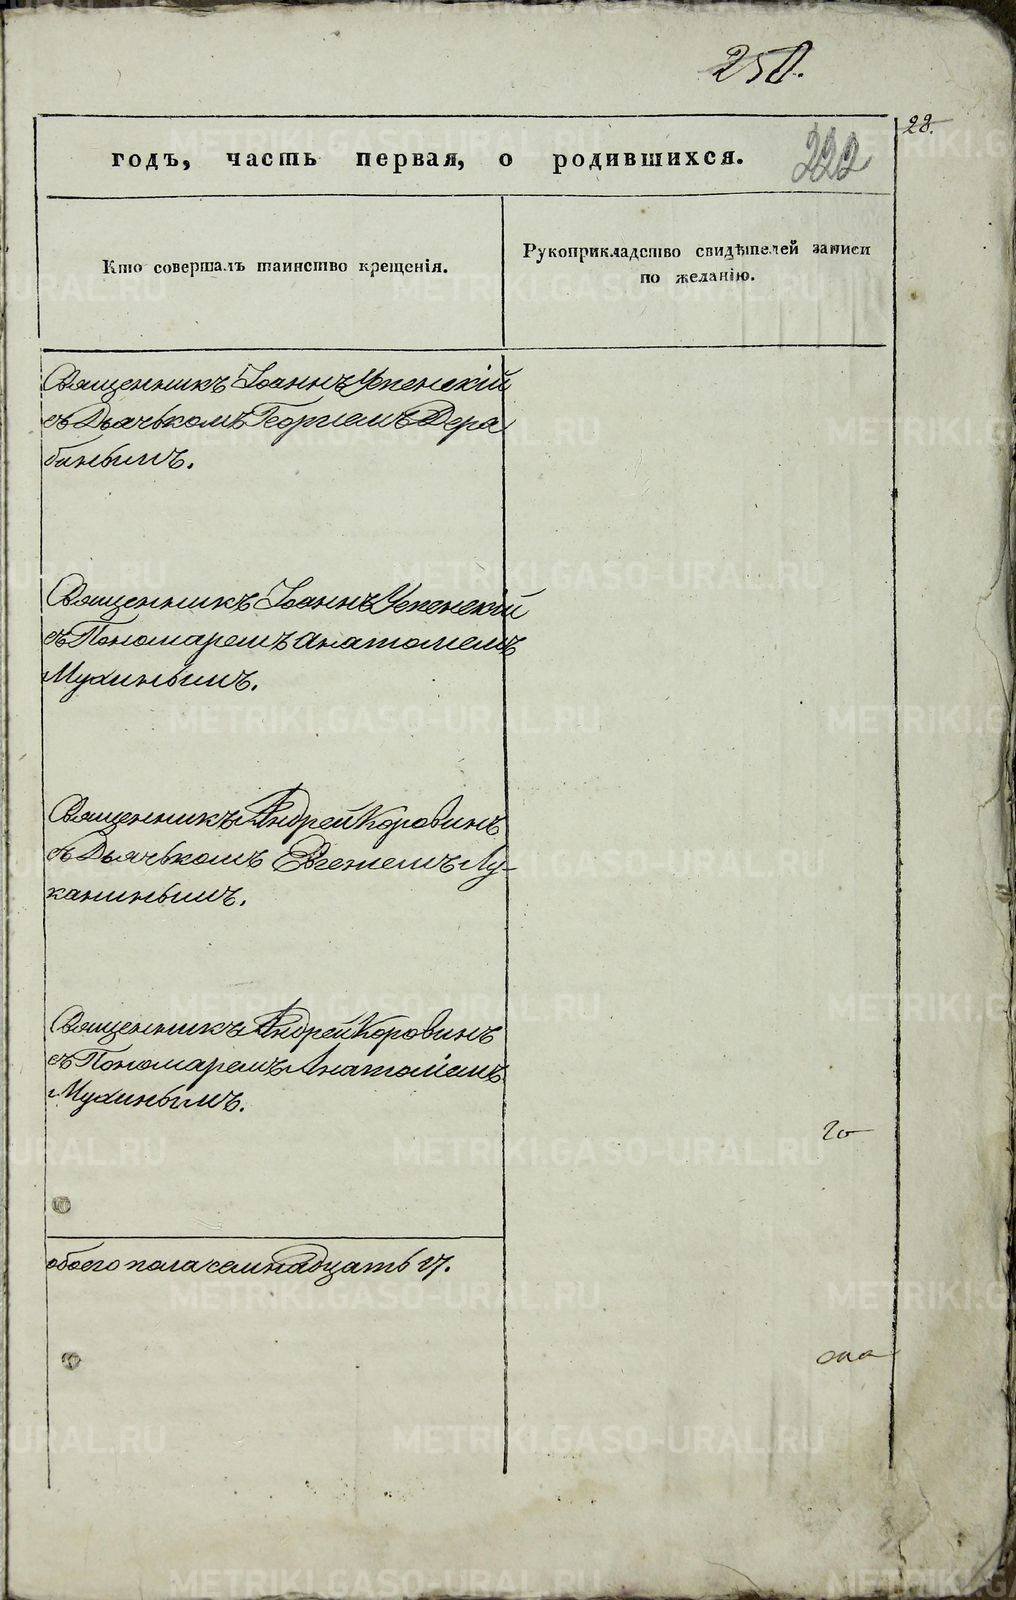 250.
28.
222
годъ, часть первая, о родившихся.
Кто совершалъ таинство крещенія.
Рукоприкладство свидѣтелей записи
по желанію.
Священникъ Іоаннъ Успенскій
съ Дьячькомъ Георгіемъ Дера
бинымъ.
Священникъ Іоаннъ Успенскій
съ Пономаремъ Анатоліемъ
Мухинымъ.
Священникъ Андрей Коровинъ
съ Дьячькомъ Евгеніемъ Лу-
канинымъ.
Священникъ Андрей Коровинъ
съ Пономаремъ Анатоліемъ
Мухинымъ.
обоего пола семнадцать 17.
METRIKI.GASO-URAL.RU